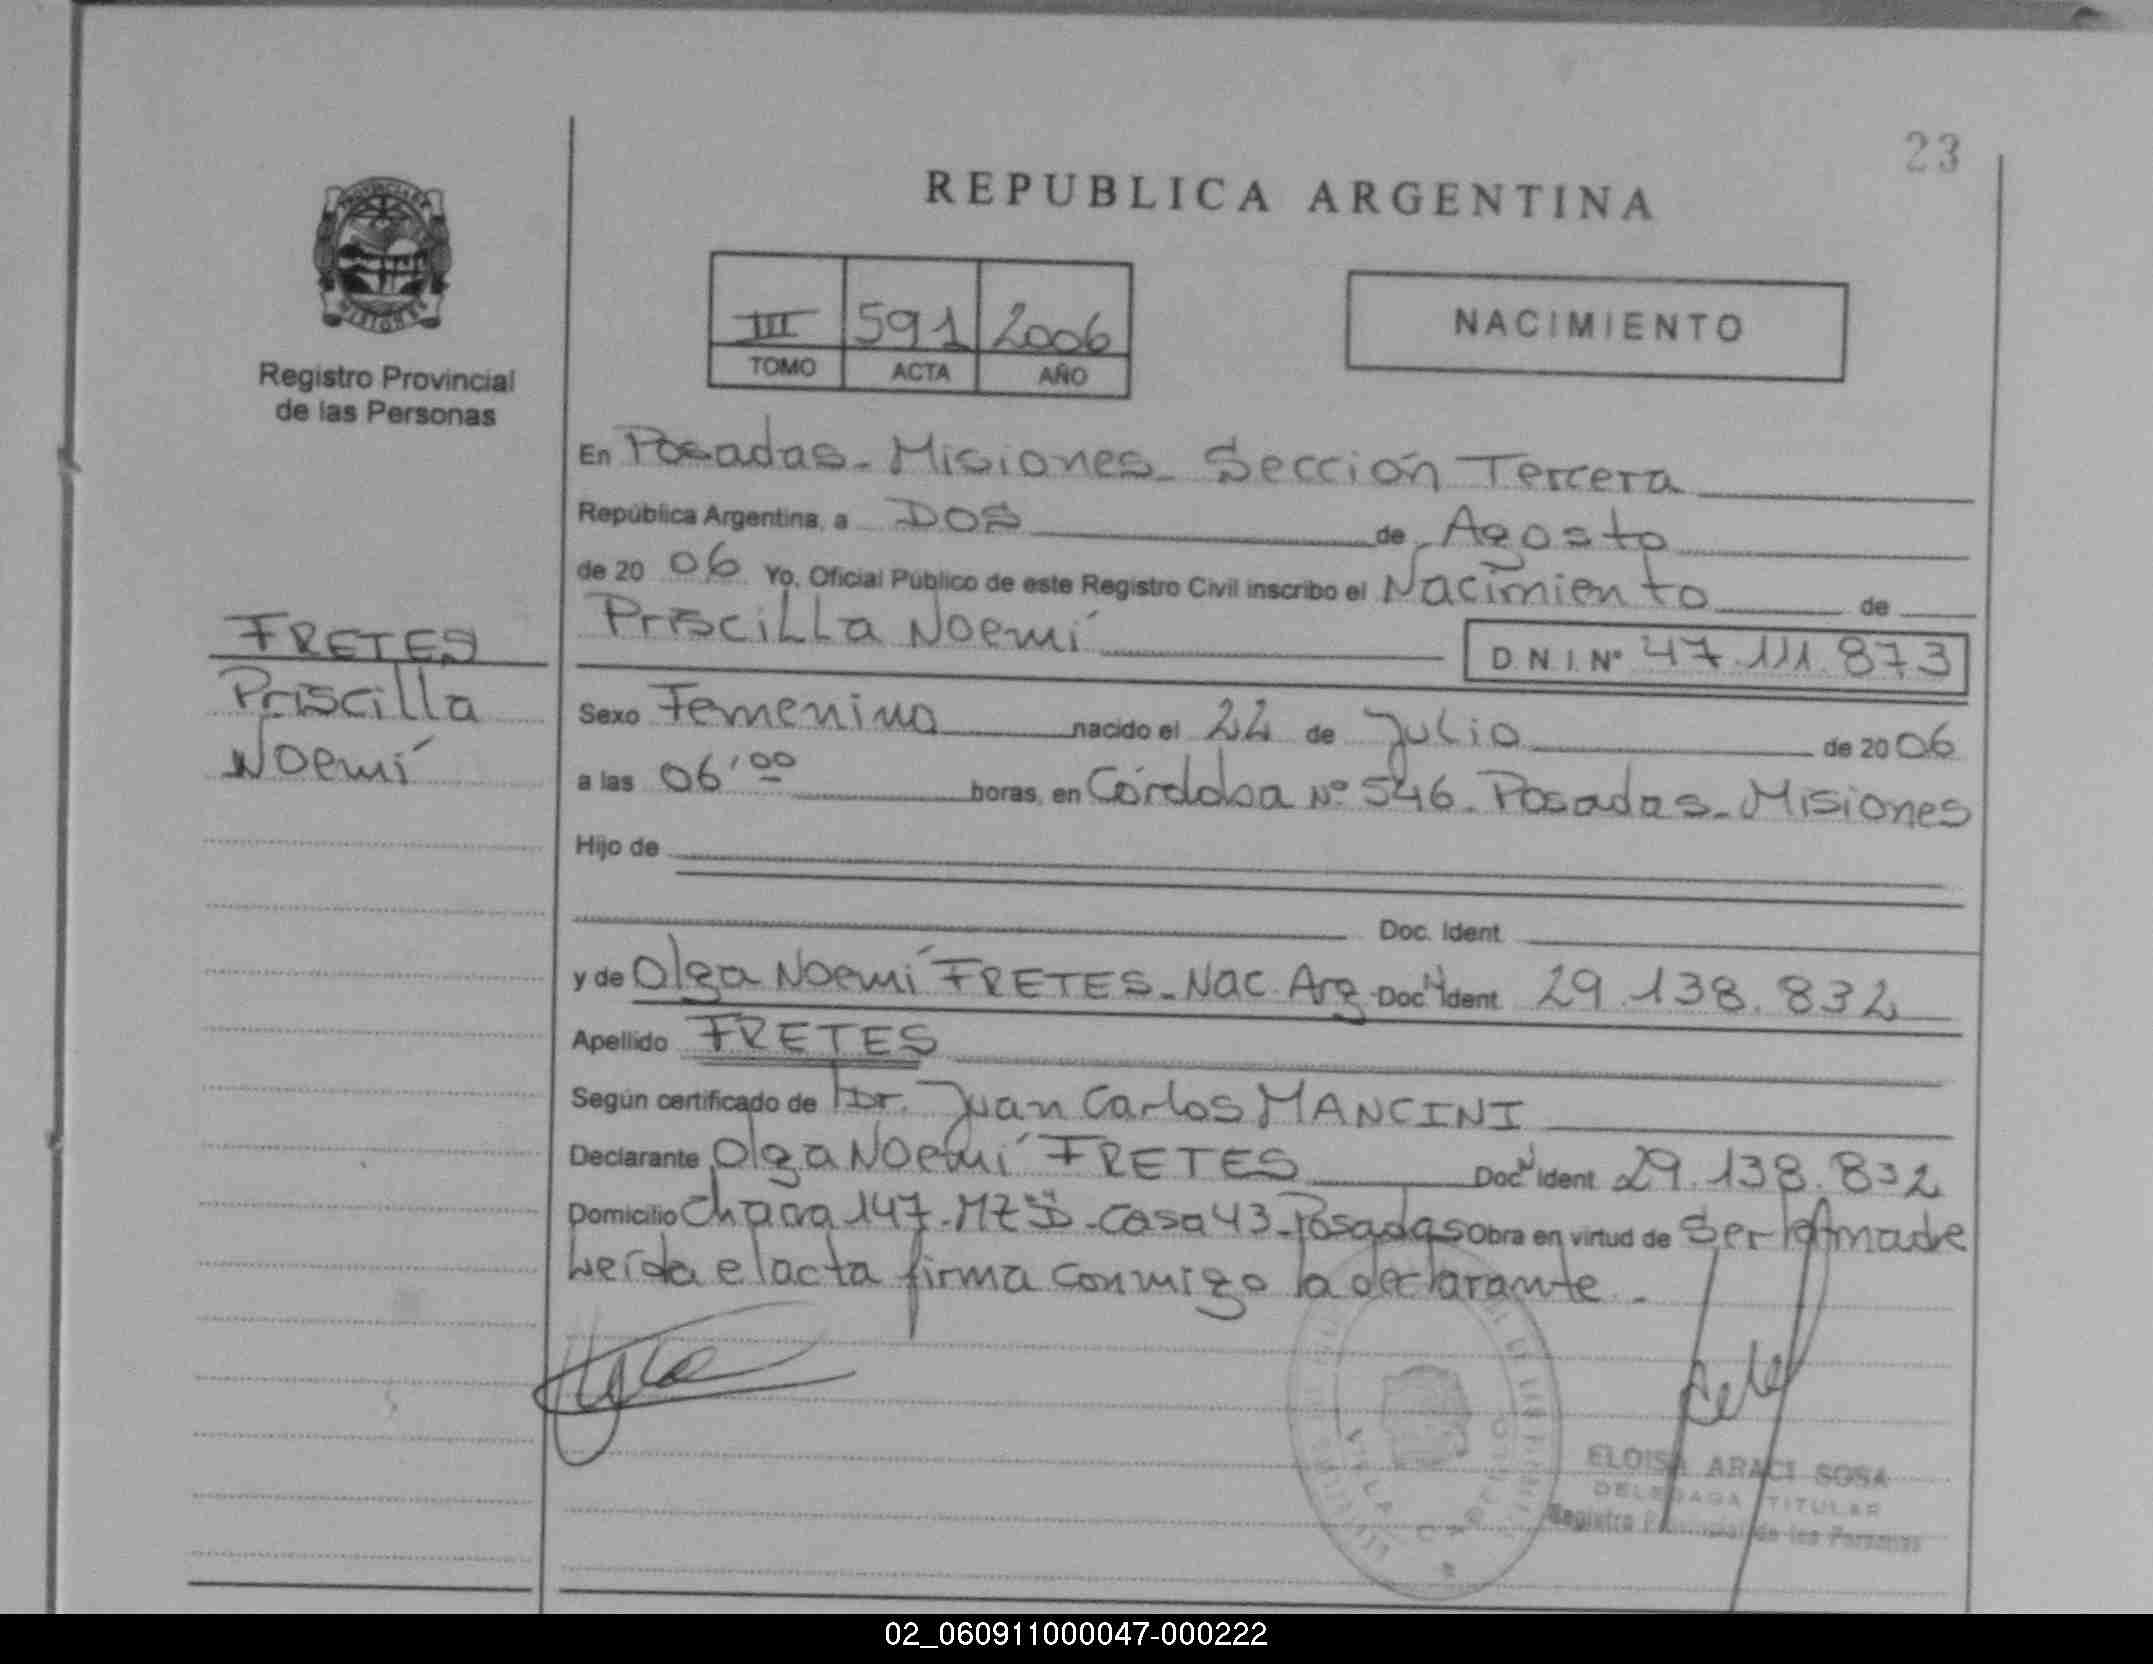 23
REPUBLICA ARGENTINA
III 591 2006
TOMO ACTA AÑO
NACIMIENTO
PROVINCIA DE
MISIONES
Registro Provincial
de las Personas
FRETES
Priscilla
Noemí
En Posadas - Misiones - Sección Tercera
República Argentina, a DOS de Agosto
de 20 06 Yo, Oficial Público de este Registro Civil inscribo el Nacimiento de
Priscilla Noemí D.N.I. Nº 47.111.873
Sexo Femenino nacido el 22 de Julio de 20 06
a las 06'00 horas, en Córdoba Nº 546. Posadas - Misiones
Hijo de
Doc. Ident.
y de Olga Noemí FRETES - Nac. Arg. Doc. N Ident. 29.138.832
Apellido FRETES
Según certificado de Dr. Juan Carlos MANCINI
Declarante Olga Noemí FRETES Doc. N Ident. 29.138.832
Domicilio Chacra 147 - MZ "D" - Casa 43 - Posadas Obra en virtud de Ser la madre
Leída el acta firma conmigo la declarante.-
ELOISA ARACI SOSA
DELEGADA TITULAR
Registro Provincial de las Personas
02_060911000047-000222